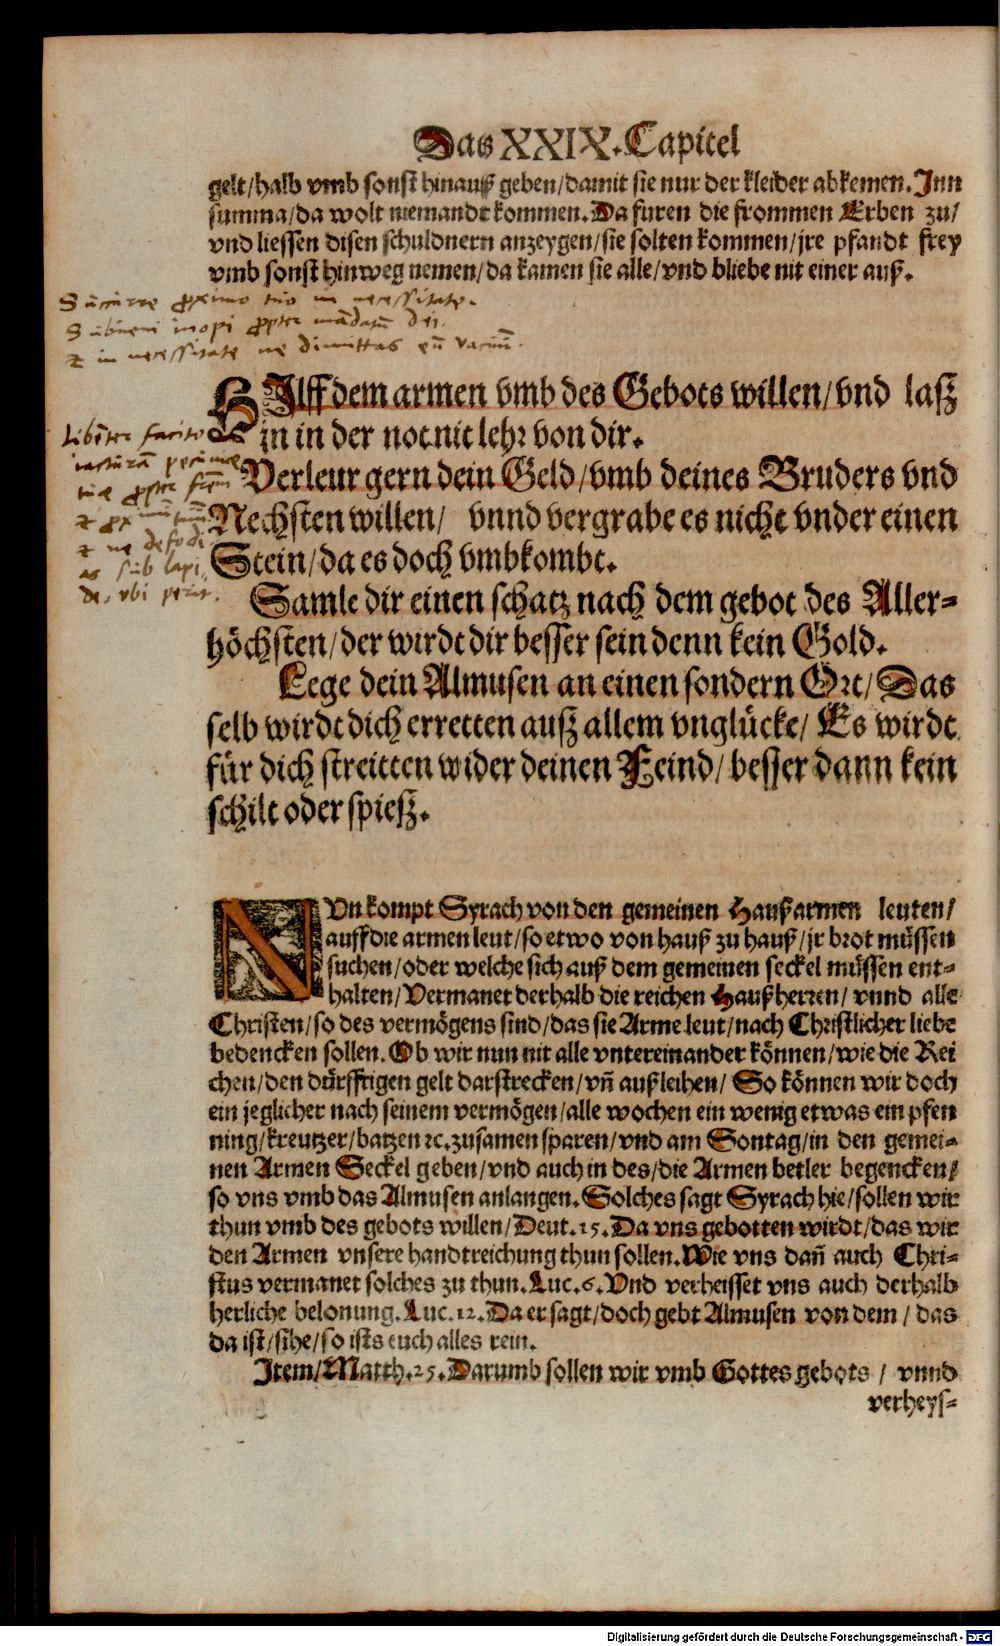 Das XXIX. Capitel
gelt/halb vmb sonst hinauß geben/damit sie nur der kleider abkemen. Inn
summa/da wolt niemandt kommen. Da furen die frommen Erben zu/
vnd liessen disen schuldnern anzeygen/sie solten kommen/jre pfandt frey
vmb sonst hinweg nemen/da kamen sie alle/vnd bliebe nit einer auß.
Succurre proximo tuo in necessitate.
Subveni inopi propter mandatū dei.
et in necessitate ne dimittas eū vacuū.
HIlff dem armen vmb des Gebots willen/vnd laß
jn in der not nit lehr von dir.
Verleur gern dein Geld/vmb deines Bruders vnd
Nechsten willen/ vnnd vergrabe es nicht vnder einen
Stein/da es doch vmbkombt.
Libēter facito
iacturā pecuniae
tuae propter frēm
et proximū tuū
et ne defodi
as sub lapi
de, vbi perit.
Samle dir einen schatz nach dem gebot des Aller-
höchsten/der wirdt dir besser sein denn kein Gold.
Lege dein Almusen an einen sondern Ort/Das
selb wirdt dich erretten auß allem vnglücke/ Es wirdt
für dich streitten wider deinen Feind/besser dann kein
schilt oder spieß.
NVn kompt Syrach von den gemeinen Haußarmen leuten/
auff die armen leut/so etwo von hauß zu hauß/jr brot müssen
suchen/oder welche sich auß dem gemeinen seckel müssen ent-
halten/Vermanet derhalb die reichen Haußherren/vnnd alle
Christen/so des vermögens sind/das sie Arme leut/nach Christlicher liebe
bedencken sollen. Ob wir nun nit alle vntereinander können/wie die Rei
chen/den dürfftigen gelt darstrecken/vñ außleihen/ So können wir doch
ein jeglicher nach seinem vermögen/alle wochen ein wenig etwas ein pfen
ning/kreutzer/batzen ꝛc. zusamen sparen/vnd am Sontag/in den gemei-
nen Armen Seckel geben/vnd auch in des/die Armen betler begencken/
so vns vmb das Almusen anlangen. Solches sagt Syrach hie/sollen wir
thun vmb des gebots willen/Deut. 15. Da vns gebotten wirdt/das wir
den Armen vnsere handtreichung thun sollen. Wie vns dañ auch Chri-
stus vermanet solches zu thun. Luc. 6. Vnd verheisset vns auch derhalb
herliche belonung. Luc. 12. Da er sagt/doch gebt Almusen von dem/das
da ist/sihe/so ists euch alles rein.
Item/Matth. 25. Darumb sollen wir vmb Gottes gebots / vnnd
verheys-
Digitalisierung gefördert durch die Deutsche Forschungsgemeinschaft - DFG